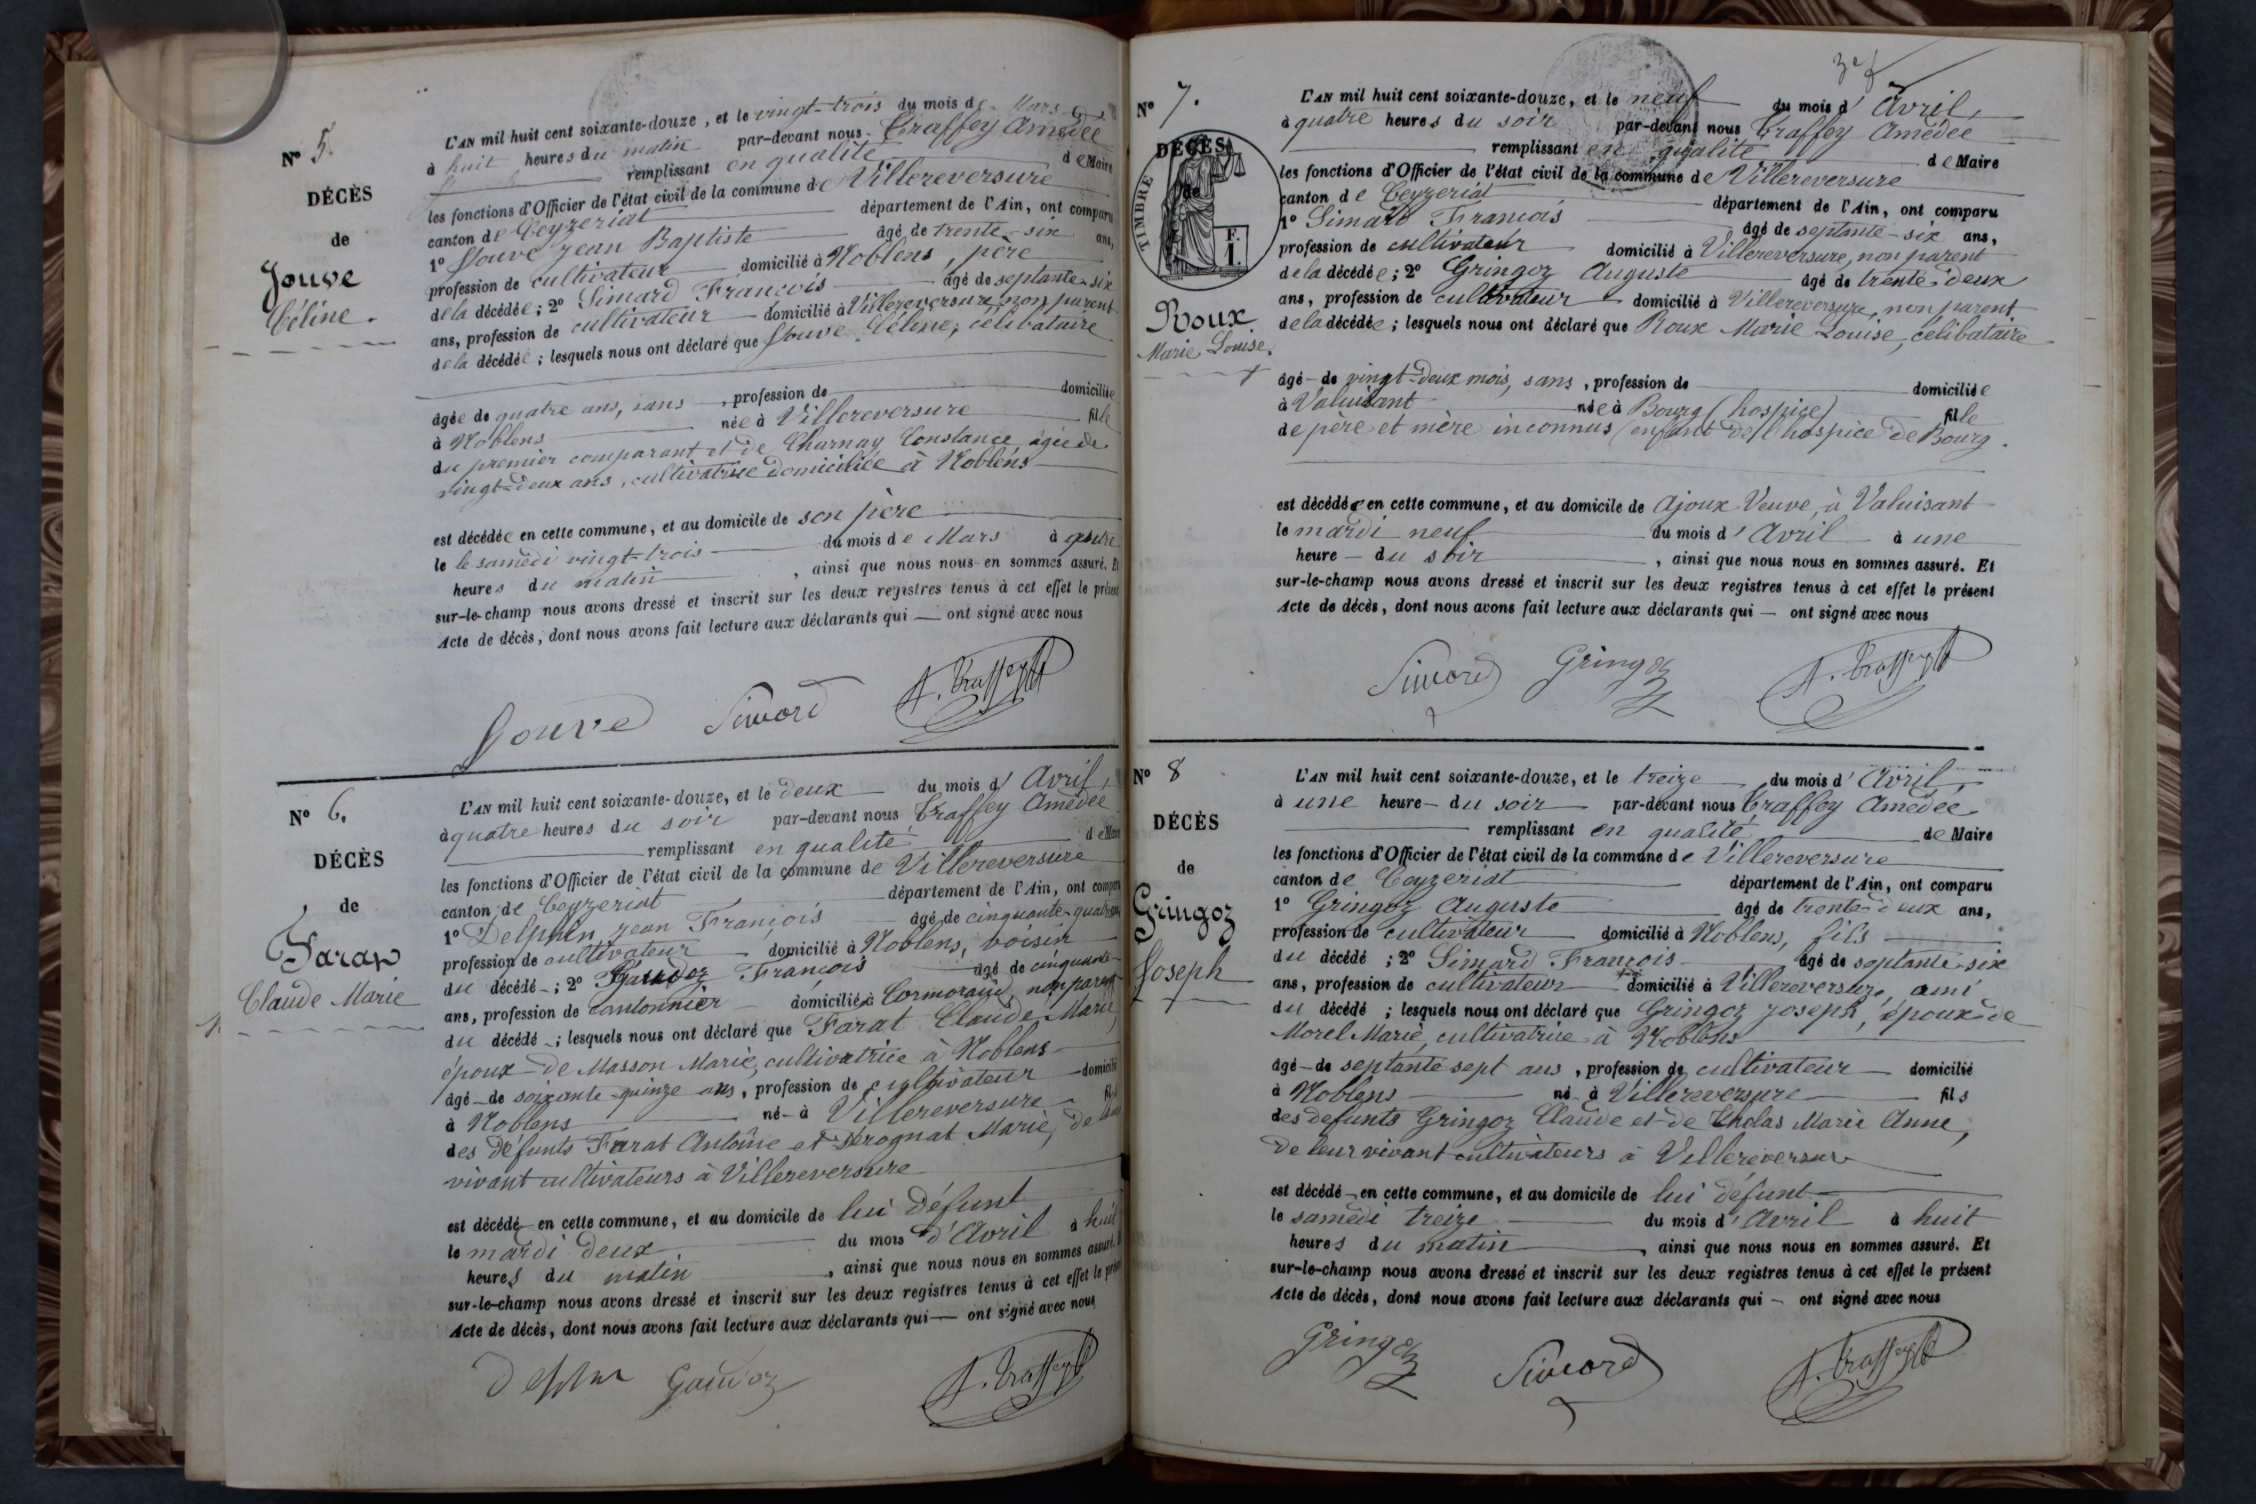 N° 5.
DÉCÈS
de
Jouve
Céline.
L'AN mil huit cent soixante-douze, et le vingt-trois du mois de Mars
à huit heures du matin par-devant nous Traffey Amédée
remplissant en qualité de Maire
les fonctions d'Officier de l'état civil de la commune de Villereversure
canton de Ceyzeriat département de l'Ain, ont comparu
1° Jouve Jean Baptiste âgé de trente-six ans,
profession de cultivateur domicilié à Noblens, père
de la décédée; 2° Simard François âgé de septante-six
ans, profession de cultivateur domicilié à Villereversure, non parent
de la décédée; lesquels nous ont déclaré que Jouve Céline, célibataire
âgée de quatre ans, sans, profession de domiciliée
à Noblens née à Villereversure fille
du premier comparant et de Charnay Constance âgée de
vingt-deux ans, cultivatrice domiciliée à Noblens
est décédée en cette commune, et au domicile de son père
le le samedi vingt-trois du mois de Mars à quatre
heures du matin, ainsi que nous nous en sommes assuré. Et
sur-le-champ nous avons dressé et inscrit sur les deux registres tenus à cet effet le présent
Acte de décès, dont nous avons fait lecture aux déclarants qui — ont signé avec nous
Jouve Simard A. Traffey
N° 6.
DÉCÈS
de
Farat
Claude Marie
L'AN mil huit cent soixante-douze, et le deux du mois d'Avril,
à quatre heures du soir par-devant nous Traffey Amédée
remplissant en qualité de Maire
les fonctions d'Officier de l'état civil de la commune de Villereversure
canton de Ceyzeriat département de l'Ain, ont comparu
1° Delphin Jean François âgé de cinquante-quatre ans,
profession de cultivateur domicilié à Noblens, voisin
du décédé; 2° François âgé de cinquante
ans, profession de cantonnier domicilié à non parent
du décédé; lesquels nous ont déclaré que Farat Claude Marie,
époux de Masson Marie, cultivatrice à Noblens
âgé de soixante-quinze ans, profession de cultivateur domicilié
à Noblens né à Villereversure fils
des défunts Farat Antoine et Marie, de leur
vivant cultivateurs à Villereversure
est décédé en cette commune, et au domicile de lui défunt
le mardi deux du mois d'Avril à huit
heures du matin, ainsi que nous nous en sommes assuré. Et
sur-le-champ nous avons dressé et inscrit sur les deux registres tenus à cet effet le présent
Acte de décès, dont nous avons fait lecture aux déclarants qui — ont signé avec nous
A. Traffey
N° 7.
DÉCÈS
de
TIMBRE
F.
1.
Roux
Marie Louise.
L'AN mil huit cent soixante-douze, et le neuf du mois d'Avril,
à quatre heures du soir par-devant nous Traffey Amédée
remplissant en qualité de Maire
les fonctions d'Officier de l'état civil de la commune de Villereversure
canton de Ceyzeriat département de l'Ain, ont comparu
1° Simard François âgé de septante-six ans,
profession de cultivateur domicilié à Villereversure, non parent
de la décédée; 2° Gringoz Auguste âgé de trente-deux
ans, profession de cultivateur domicilié à Villereversure, non parent
de la décédée; lesquels nous ont déclaré que Roux Marie Louise, célibataire
âgé de vingt-deux mois, sans, profession de domiciliée
à Valuisant née à Bourg (hospice) fille
de père et mère inconnus (enfant de l'hospice de Bourg.
est décédée en cette commune, et au domicile de Ajoux Veuve, à Valuisant
le mardi neuf du mois d'Avril à une
heure du soir, ainsi que nous nous en sommes assuré. Et
sur-le-champ nous avons dressé et inscrit sur les deux registres tenus à cet effet le présent
Acte de décès, dont nous avons fait lecture aux déclarants qui — ont signé avec nous
Simard Gringoz A. Traffey
N° 8
DÉCÈS
de
Gringoz
Joseph
L'AN mil huit cent soixante-douze, et le treize du mois d'Avril,
à une heure du soir par-devant nous Traffey Amédée
remplissant en qualité de Maire
les fonctions d'Officier de l'état civil de la commune de Villereversure
canton de Ceyzeriat département de l'Ain, ont comparu
1° Gringoz Auguste âgé de trente-deux ans,
profession de cultivateur domicilié à Noblens, fils
du décédé; 2° Simard François âgé de septante-six
ans, profession de cultivateur domicilié à Villereversure, ami
du décédé; lesquels nous ont déclaré que Gringoz Joseph, époux de
Morel Marie, cultivatrice à Noblens
âgé de septante sept ans, profession de cultivateur domicilié
à Noblens né à Villereversure fils
des défunts Gringoz Claude et de Cholas Marie Anne,
de leur vivant cultivateurs à Villereversure
est décédé en cette commune, et au domicile de lui défunt
le samedi treize du mois d'Avril à huit
heures du matin, ainsi que nous nous en sommes assuré. Et
sur-le-champ nous avons dressé et inscrit sur les deux registres tenus à cet effet le présent
Acte de décès, dont nous avons fait lecture aux déclarants qui — ont signé avec nous
Gringoz Simard A. Traffey